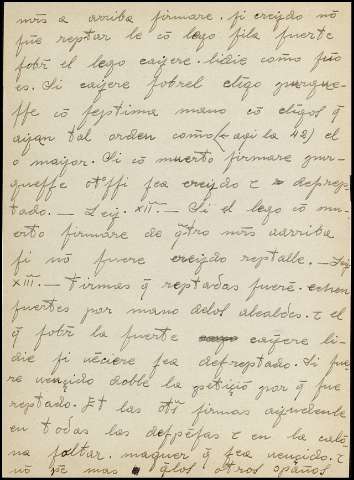 mr̃s a arriba firmare. si creydo nõ
fue reptar le cõ lego fila fuerte
sobr̃l el lego cayere. lidie como
es. Si cayere sobrel cligo
sse cõ septima mano cõ cligos q̃
ayan tal orden como (← aqi la 42) el
o mayor. Si cõ muerto firmare iur-
guesse otossi sea creydo τ desrep
tado. — Ley. XII. — Si el lego cõ mu-
erto firmare de q̃tro mr̃s aarriba
si nõ fuere creydo reptalle. — Ley
XIII. — Firmas q̃ reptadas fuerẽ. echen
suertes por mano delos alcaldes. τ el
q̃ sobr̃l la suerte cayere li-
die si uẽciere sea desreptado. Si fue
re uençido doble la petiçiõ por q̃ fue
reptado. Et las otr̃s firmas ayudenle
en todas las despẽsas τ en la calo-
na faltar. maguer q̃ sea uençido. τ
nõ pe mas q̃los otros